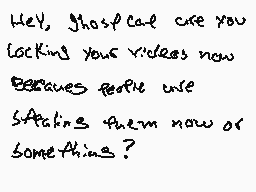 Hey, ghostcat are you
locking your videos now
Becaues people are
steating them now or
something?